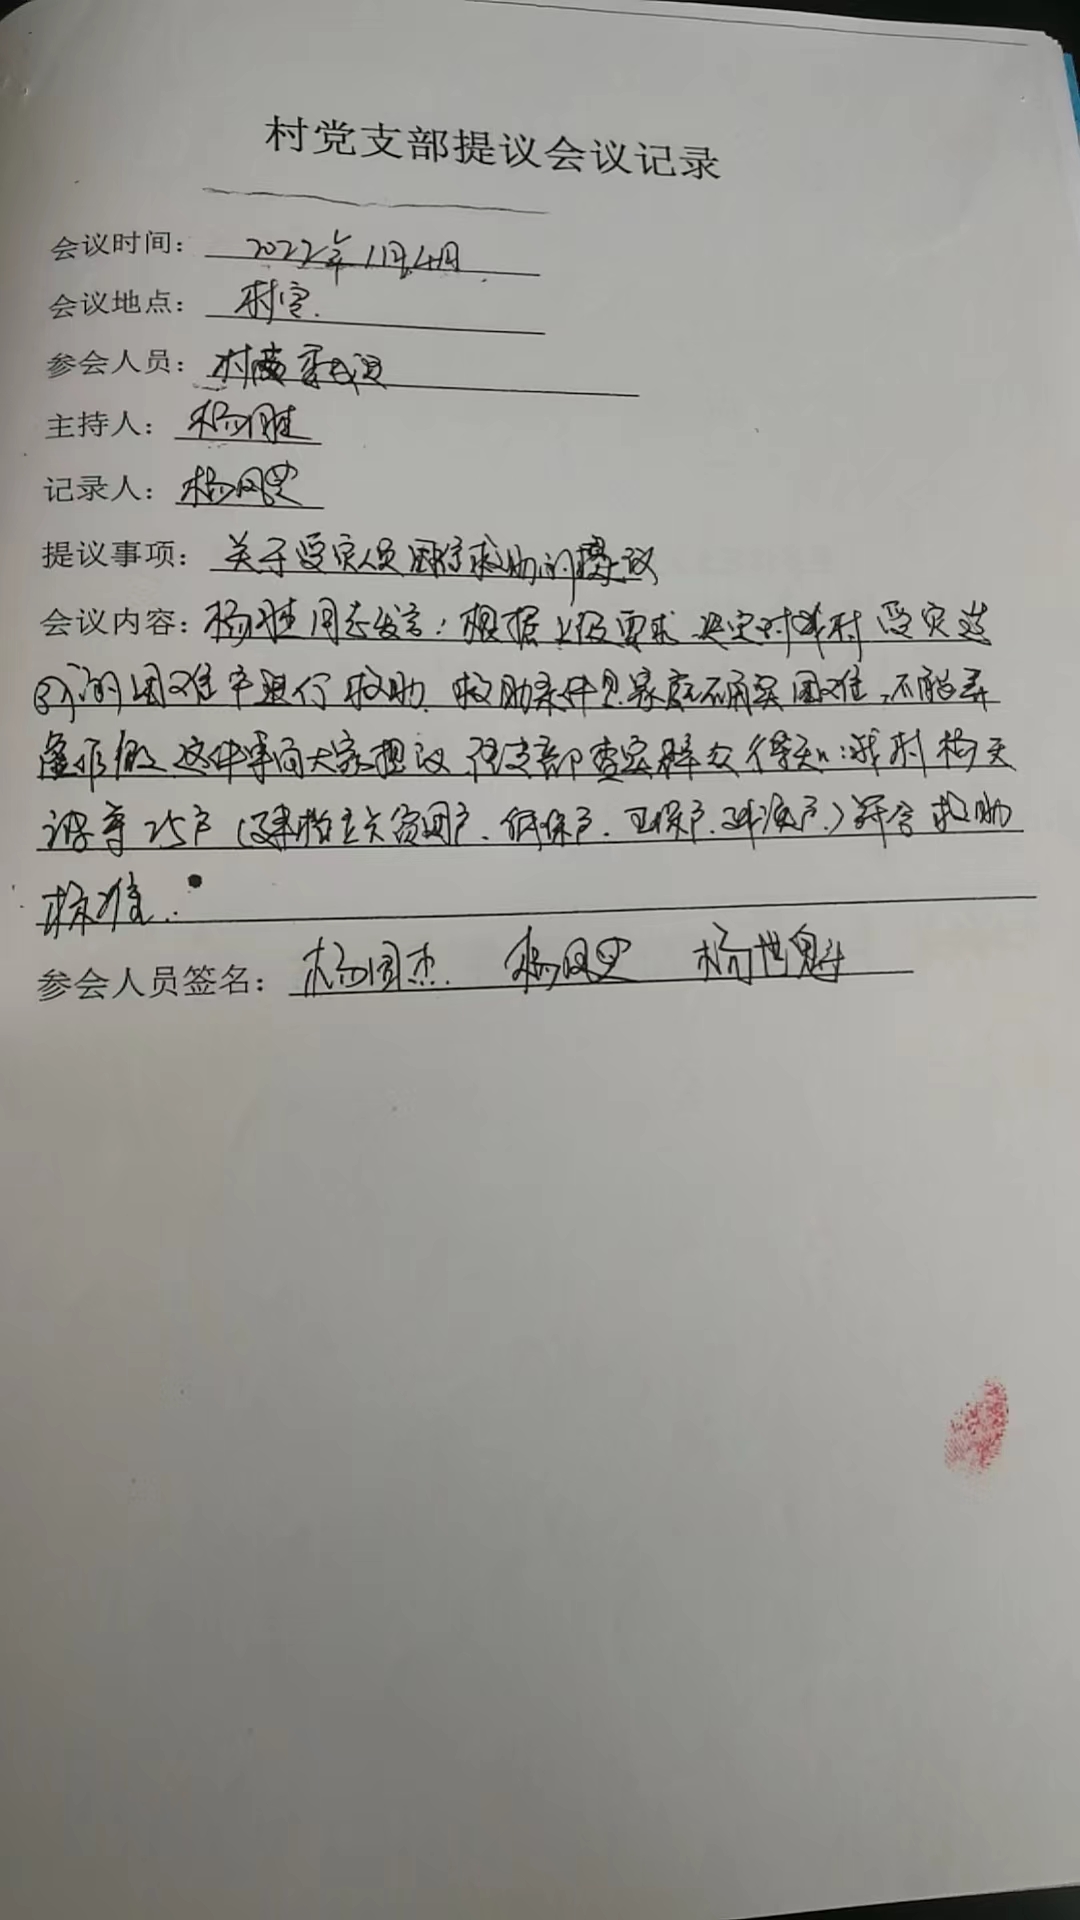 村党支部提议会议记录
会议时间：2022年11月4日
会议地点：村室.
参会人员：村委成员
主持人：杨胜
记录人：杨凤
提议事项：关于受灾人员困难救助的提议
会议内容：杨胜同志发言：根据上级要求 决定对我村 受灾造
的困难户进行救助. 救助条件是家庭确实困难，不能弄
虚作假 这件事向大家提议，经支部查实群众得知：我村杨天
等25户（建档立卡贫困户、低保户、五保户、户）符合救助
标准.
参会人员签名：杨国杰 杨凤 杨世魁